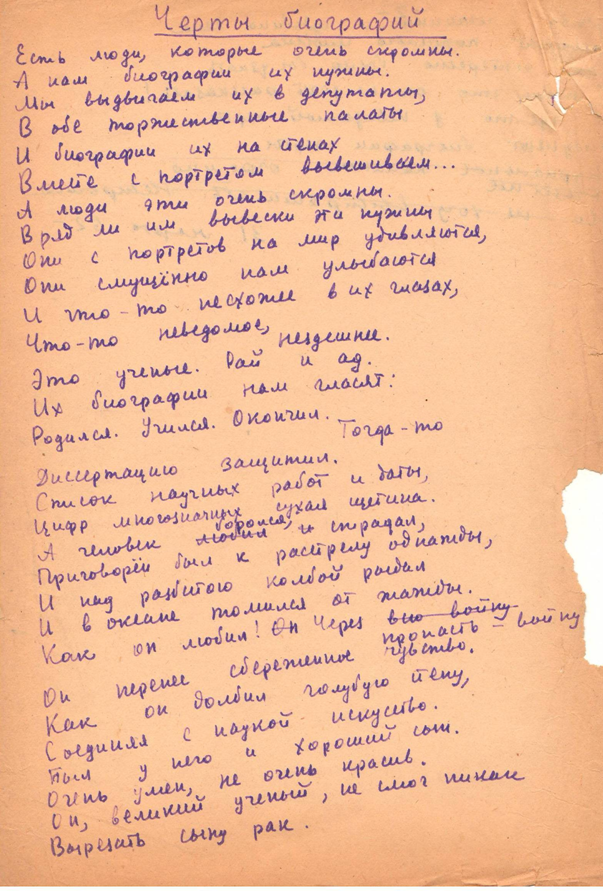 Черты биографий
Есть люди, которые очень скромны.
А нам биографии их нужны.
Мы выдвигаем их в депутаты,
В обе торжественные палаты
И биографии их на стенах
Вместе с портретом вывешиваем...
А люди эти очень скромны.
Вряд ли им вывески эти нужны
Они с портретов на мир удивляются,
Они смущённо нам улыбаются
И что-то несхожее в их глазах,
Что-то неведомое, нездешнее.
Это ученые. Рай и ад.
Их биографии нам гласят:
Родился. Учился. Окончил.
Тогда-то
Диссертацию защитил.
Список научных работ и даты,
Цифр многозначных сухая щетина.
А человек любил боролся, и страдал,
Приговорён был к расстрелу однажды,
И над разбитою колбой рыдал
И в океане томился от жажды.
Как он любил! Он через всю войну пропасть – войну
Он перенес сбереженное чувство.
Как он долбил голубую стену,
Соединял с наукой искусство.
Был у него и хороший сын.
Очень умен, не очень красив.
Он, великий ученый, не смог никак
Вырезать сыну рак.